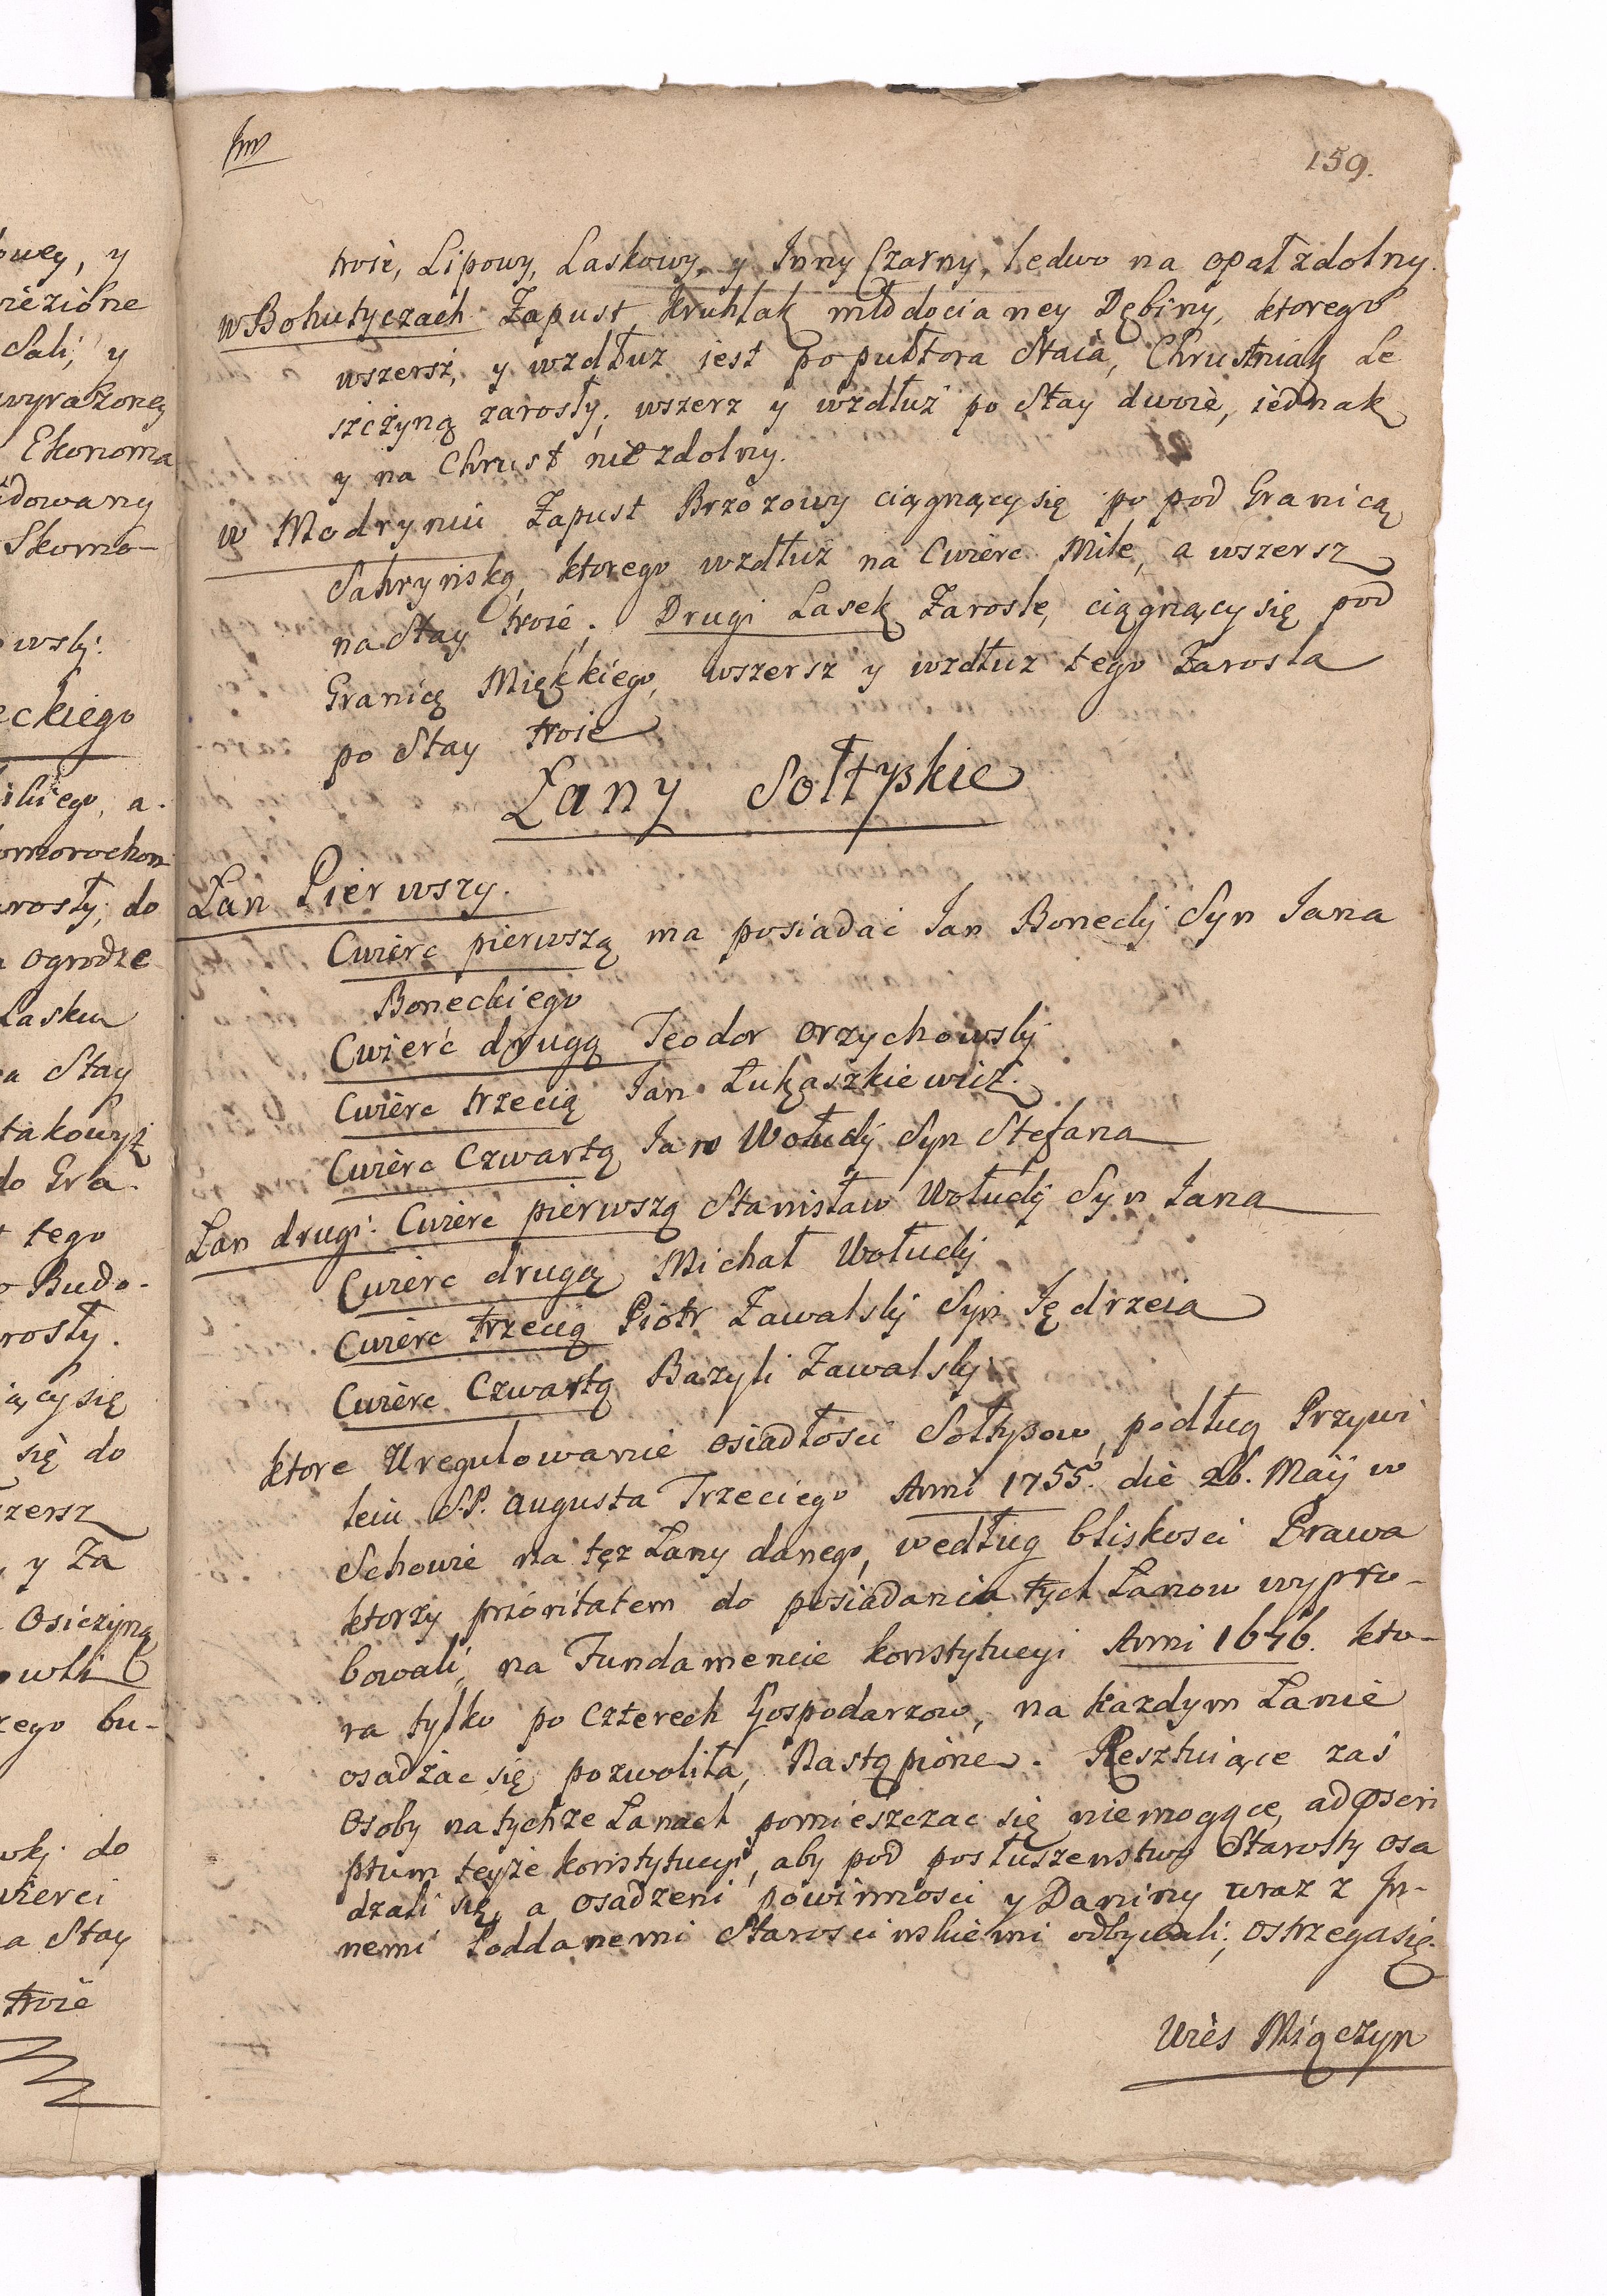 159.
troie, Lipowy, Laskowy, y Inny Czarny, ledwo na opał zdolny.
w Bohutyczach Zapust Kruhlak młodocianey Dębiny, ktorego
wszersz, y wzdłuz iest po pułtora Staia, Chrustniak Le
szczyną zarosły, wszerz y wzdłuz po Stay dwoie, iednak
y na Chrust nie zdolny.
w Modryniu Zapust Brzozowy ciągnący się po pod Granicą
Sahryńską, ktorego wzdłuż na Cwierc Mile, a wszersz
na Stay troie; Drugi Lasek Zarosle, ciągnący się pod
Granicę Miękkiego, wszersz y wzdłuz tego Zarosla
po Stay troie
Łany Sołtyskie
Łan Pierwszy.
Cwierc pierwszą ma posiadac Jan Bonecki Syn Jana
Boneckiego
Cwierć drugą Teodor Orzychowski
Cwierc trzecią Jan Łukaszkiewicz.
Cwierc Czwartą Jan Wołucki Syn Stefana
Łan drugi: Cwierc pierwszą Stanisław Wołucki Syn Jana
Cwierc drugą Michał Wołucki
Cwierc trzecią Piotr Zawalski Syn Jędrzeia
Cwierc Czwartą Bazyli Zawalski
ktore Uregulowanie osiadłosci Sołtysow, podług Przywi
leiu SP. Augusta Trzeciego Anni 1755. die 26. Maij w
Schowie na tęz Łany danego, według bliskosci Prawa
ktorzy prioritatem do posiadania tych Łanow wypro-
bowali, na Fundamencie konstytucyi Anni 1676. kto-
ra tylko po czterech Gospodarzow, na kazdym Łanie
osadzac się pozwoliła, Nastąpione. Resztuiące zas
Osoby na tychze Łanach pomieszczac się niemogące, ad prescri
ptum teyże konstytucyi, aby pod posłuszenstwo Starosty osa
dzali się, a osadzeni powinnosci y Daniny wraz z In-
nemi Poddanemi Staroscinskiemi odbywali; ostrzega się.
Wies Miączyn